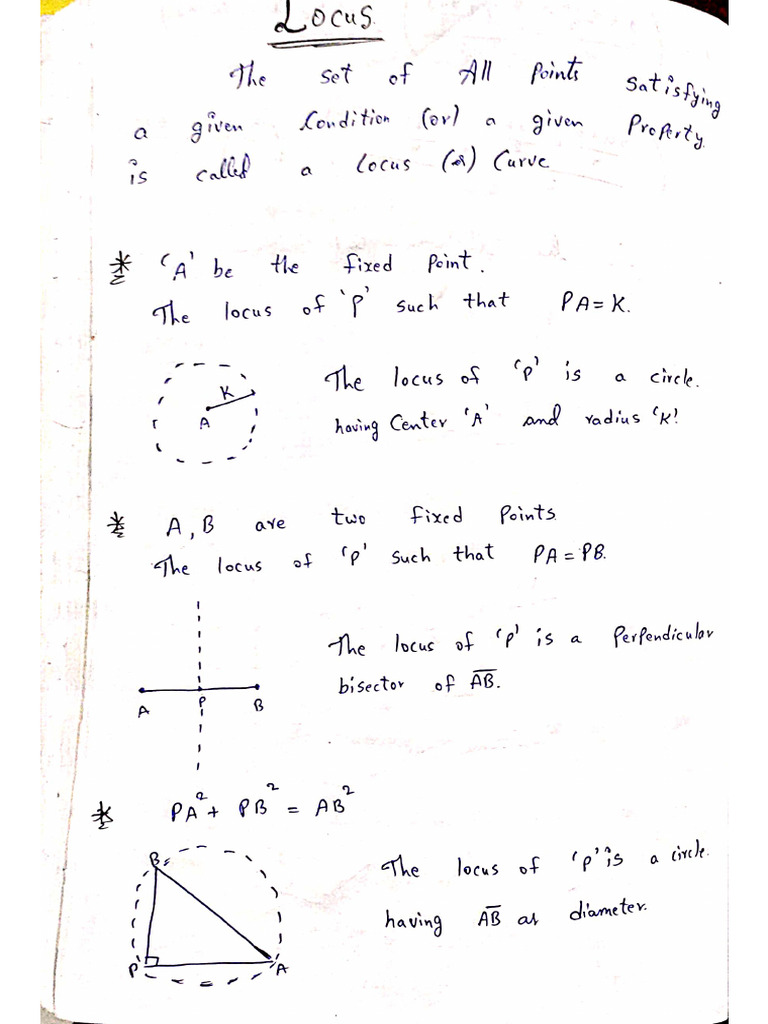 Locus.
The set of All Points satisfying
a given Condition (or) a given Property.
is called a Locus (or) Curve
* 'A' be the fixed Point.
The locus of 'P' such that PA = K.
K
A
The locus of 'P' is a circle.
having Center 'A' and radius 'K'.
* A, B are two fixed Points.
The locus of 'P' such that PA = PB.
A P B
The locus of 'P' is a Perpendicular
bisector of A̅B̅.
* PA² + PB² = AB²
B
P A
The locus of 'P' is a circle.
having A̅B̅ as diameter.